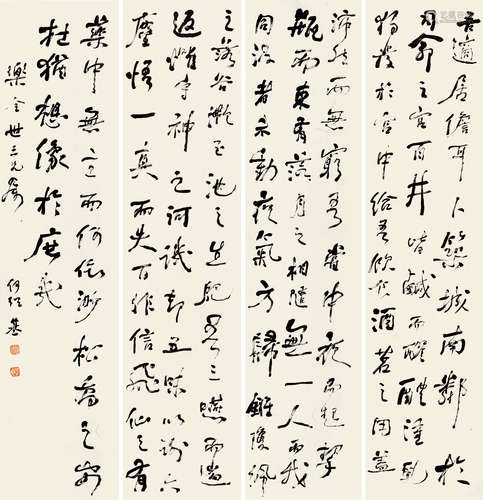 吾謫居儋耳卜築城南鄰於
司命之宮百井皆鹹而醪醴湩乳
獨發於宮中給吾飲食酒茗之用蓋
沛然而無窮吾嘗中夜而起挈
瓶而東有落月之相隨無一人而我
同汲者未動夜氣方歸鏘瓊佩
之落谷灩玉池之生肥吾三嚥而遄
返懼守神之訶譏却五味以謝六
塵悟一真而失百非信飛仙之有
藥中無主而何依渺松喬之安
在猶想像於庶幾
世三兄屬
何紹基